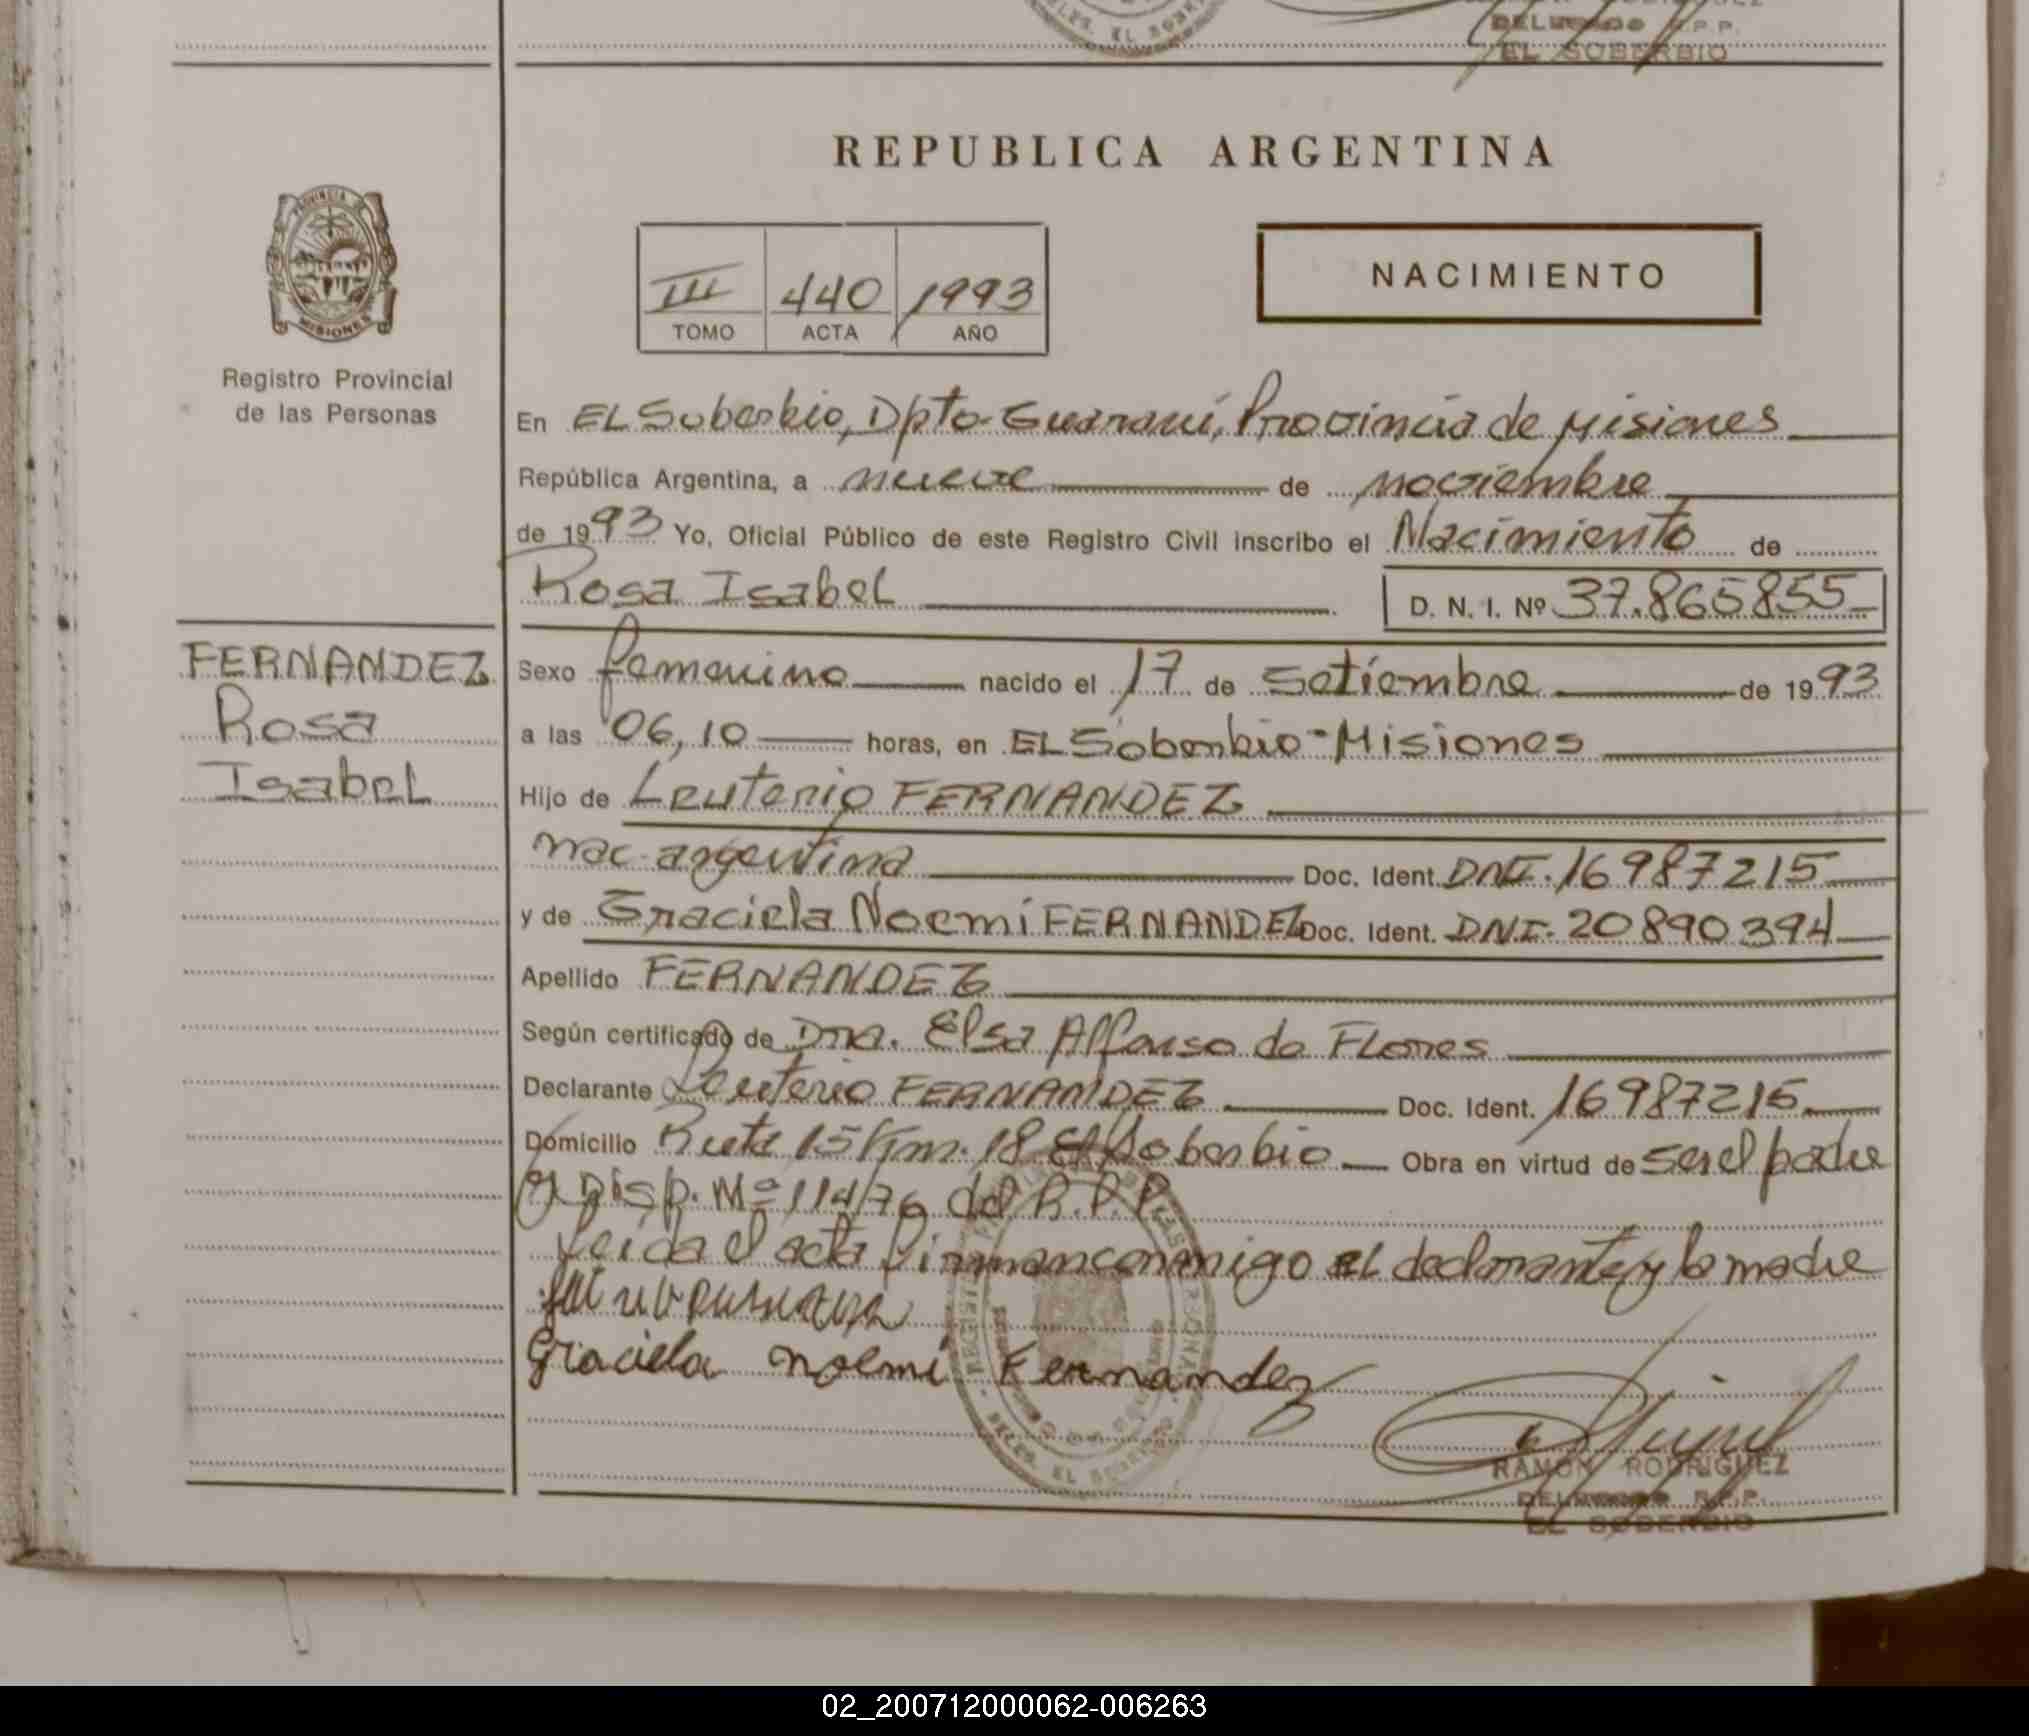 EL SOBERBIO
REPUBLICA ARGENTINA
PROVINCIA DE
MISIONES
Registro Provincial
de las Personas
III 440 1993
TOMO ACTA AÑO
NACIMIENTO
En EL Soberbio, Dpto. Guaraní, Provincia de Misiones
República Argentina, a nueve de noviembre
de 1993 Yo, Oficial Público de este Registro Civil inscribo el Nacimiento de
Rosa Isabel D. N. I. Nº 37.865855
FERNANDEZ
Rosa
Isabel
Sexo femenino nacido el 17 de Setiembre de 1993
a las 06,10 horas, en EL Soberbio-Misiones
Hijo de Leuterio FERNANDEZ
nac. argentina Doc. Ident. DNI. 16987215
y de Graciela Noemí FERNANDEZ Doc. Ident. DNI. 20890394
Apellido FERNANDEZ
Según certificado de Dña. Elsa Alfonso de Flores
Declarante Leuterio FERNANDEZ Doc. Ident. 16987215
Domicilio Ruta 15 Km. 18 El Soberbio Obra en virtud de ser el padre
y Disp. Nº 114/76 del R.P.P.
Leida el acta firman conmigo el declarante y la madre
Graciela Noemí Fernandez
RAMON RODRIGUEZ
R.P.P.
EL SOBERBIO
02_200712000062-006263